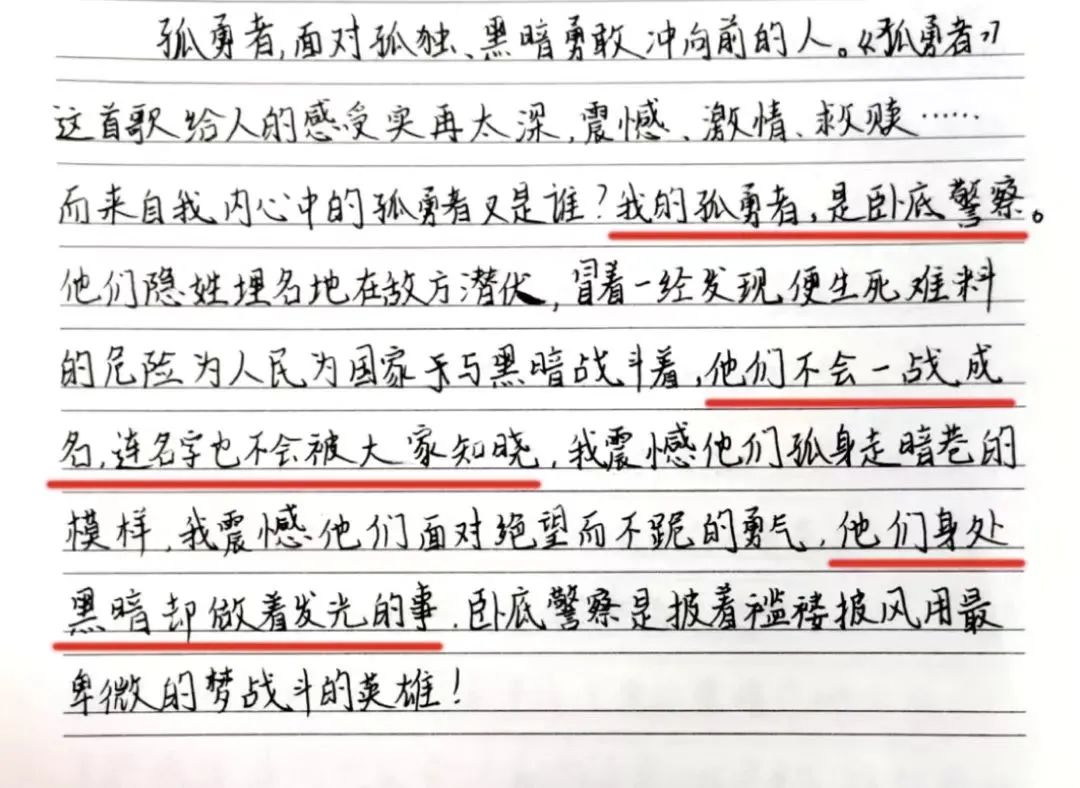 孤勇者,面对孤独、黑暗勇敢冲向前的人。《孤勇者》
这首歌给人的感受实再太深,震憾、激情、救赎……
而来自我内心中的孤勇者又是谁?我的孤勇者,是卧底警察。
他们隐姓埋名地在敌方潜伏,冒着一经发现便生死难料
的危险为人民为国家与黑暗战斗着,他们不会一战成
名,连名字也不会被大家知晓,我震憾他们孤身走暗巷的
模样,我震憾他们面对绝望而不跪的勇气,他们身处
黑暗却做着发光的事,卧底警察是披着褴褛披风用最
卑微的梦战斗的英雄!